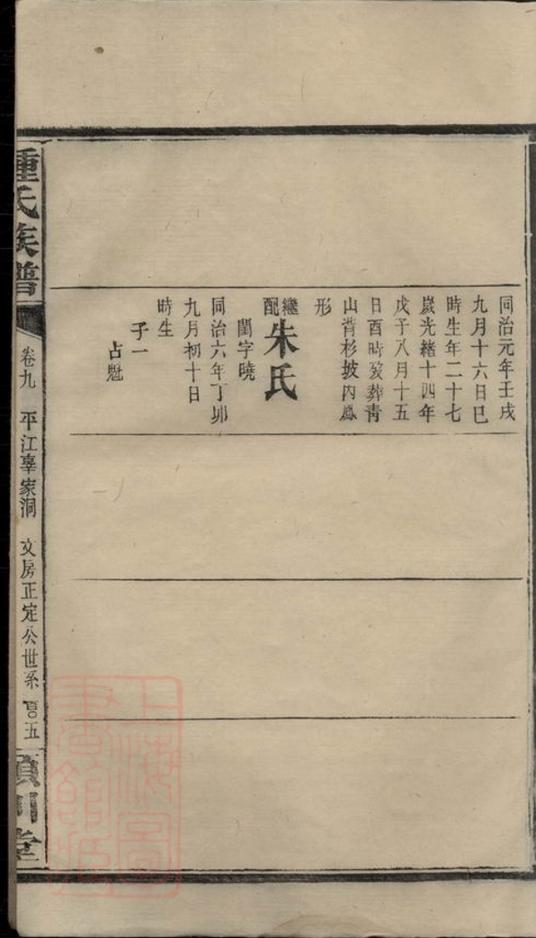 同治元年壬戌
九月十六日巳
時生年二十七
歲光緒十四年
戊子八月十五
日酉時歿葬青
山背杉坡內鳳
形
繼配朱氏
閨字曉
同治六年丁卯
九月初十日
時生
子一
占魁
鍾氏族譜
卷九 平江辜家洞 文房正定公世系 百五
潁川堂
上海圖書館藏